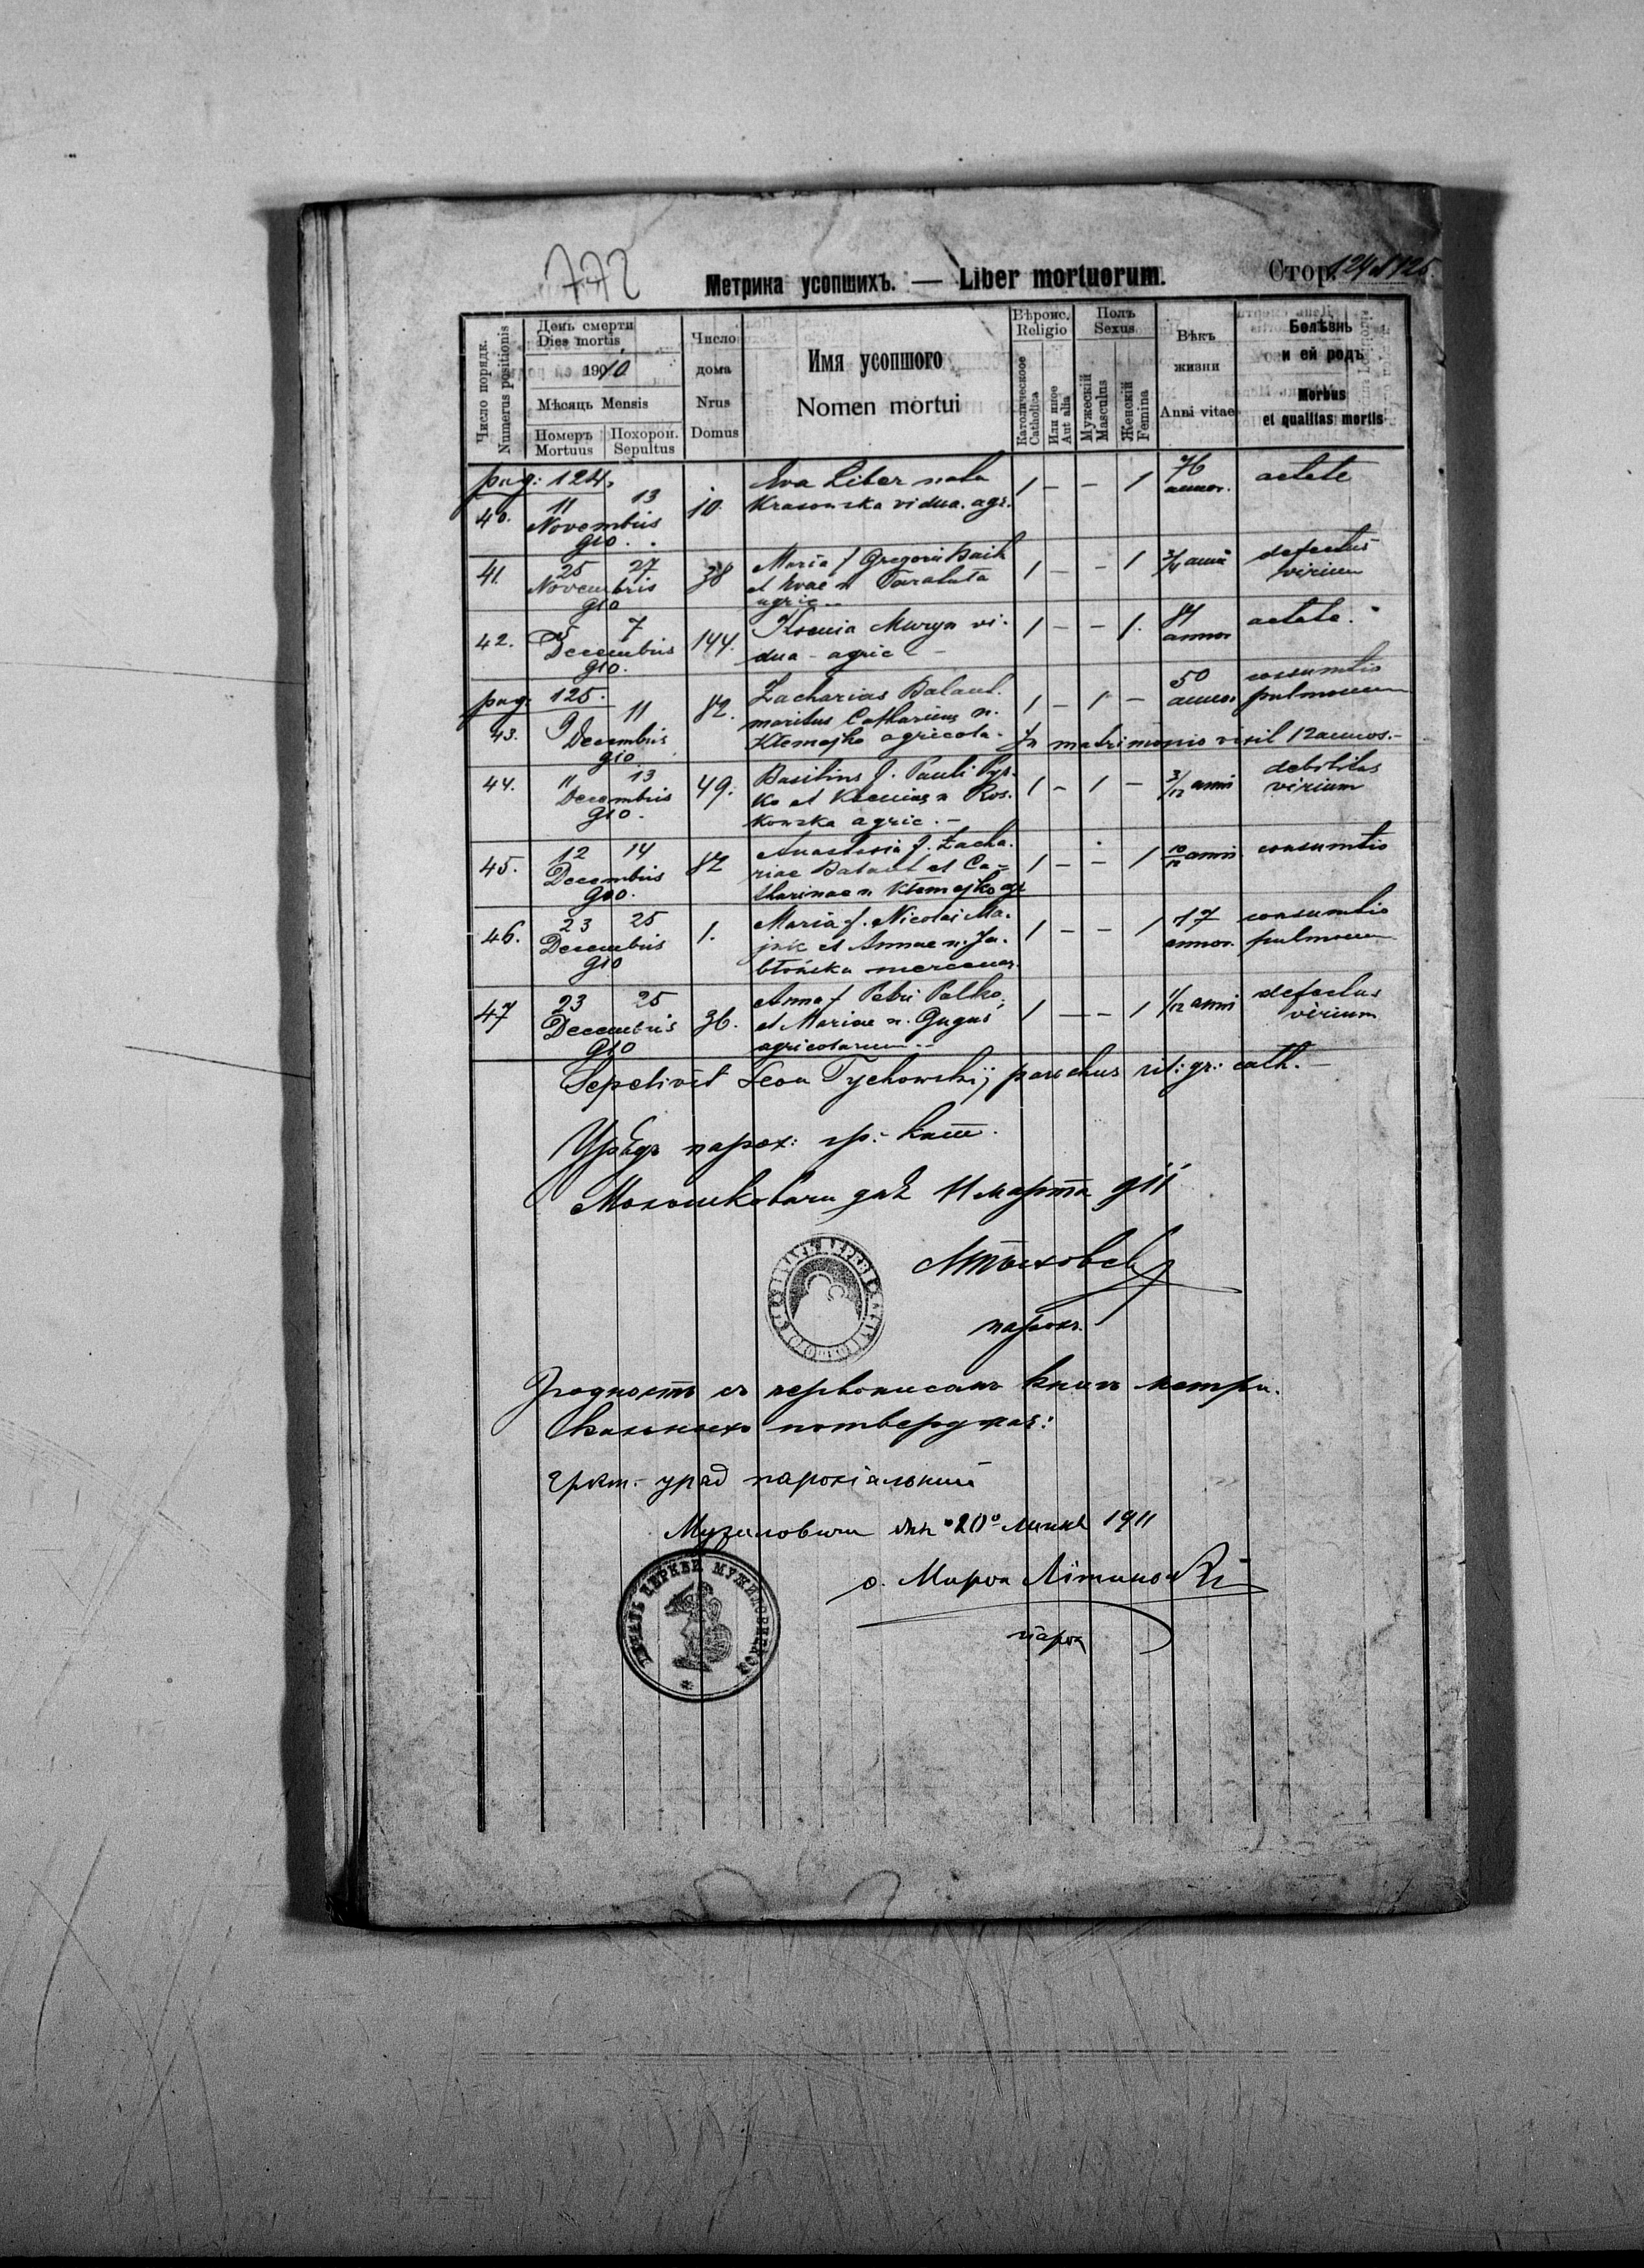 772
Метрика усопшихъ. — Liber mortuorum.
Стор. 124 et 125.
Число порядк. Numerus positionis
День смерти Dies mortis
1910
Мѣсяць Mensis
Померъ Mortuus
Похорон. Sepultus
Число дома Nrus Domus
Имя усопшого Nomen mortui
Вѣроис. Religio
Католическое Catholica
Или иное Aut alia
Полъ Sexus
Мужескій Masculus
Женскій Femina
Вѣкъ жизни Anni vitae
Болѣзнь и ей родъ Morbus et qualitas mortis
pag: 124.
40. 11 13 Novembris 910. 10. Eva Liber nata
Krasowska vidua. agr. 1 – – 1 76 annor. aetate
41. 25 27 Novembris 910 38 Maria f Gregorii Baik
et Evae n Taraluta
agric.. 1 – – 1 3/4 anni defectus
virium
42. 5 7 Decembris 910. 144. Ksenia Muryn vi-
dua - agric – 1 – – 1. 84 annor aetate.
pag. 125.
43. 9 11 Decembris 910 82. Zacharias Balaut.
maritus Catharinae n.
Klemejko agricola. 1 – 1 – 50 annor consumtio
pulmonum
In matrimonio vixit 12 annos.–
44. 11 13 Decembris 910. 49. Basilius f. Pauli Pys-
ko et Kseniae n Ros-
kowska agric. – 1 – 1 – 3/12 anni debilitas
virium
45. 12 14 Decembris 910. 82 Anastasia f. Zacha-
riae Balaut et Ca-
tharinae n Klemejko agr 1 – – 1 10/12 anni consumtio
46. 23 25 Decembris 910 1. Maria f. Nicolai Ma-
jik et Annae n. Ja-
błońska mercenar. 1 – – 1 17 annor. consumtio
pulmonum
47 23 25 Decembris 910 36. Anna f Petri Palko
et Mariae n. Guguś
agricolarum.– 1 – – 1 1/12 anni defectus
virium
Sepelivit Leon Tychowskij parochus rit: gr: cath. –
Урѣдъ парох: гр: кат.
Молошковичи дня 11 марта 911
Лтыховскі
парохъ
Згодность съ первописомъ книгъ метри-
кальныхъ потверджаю:
гркт. уряд парохіяльний
Мужиловичи дня 20 липня 1911
о. Мирон Літинскі
парох
ПЕЧАТЬ ЦЕРКВИ МУЖИЛОВИЦКОЙ